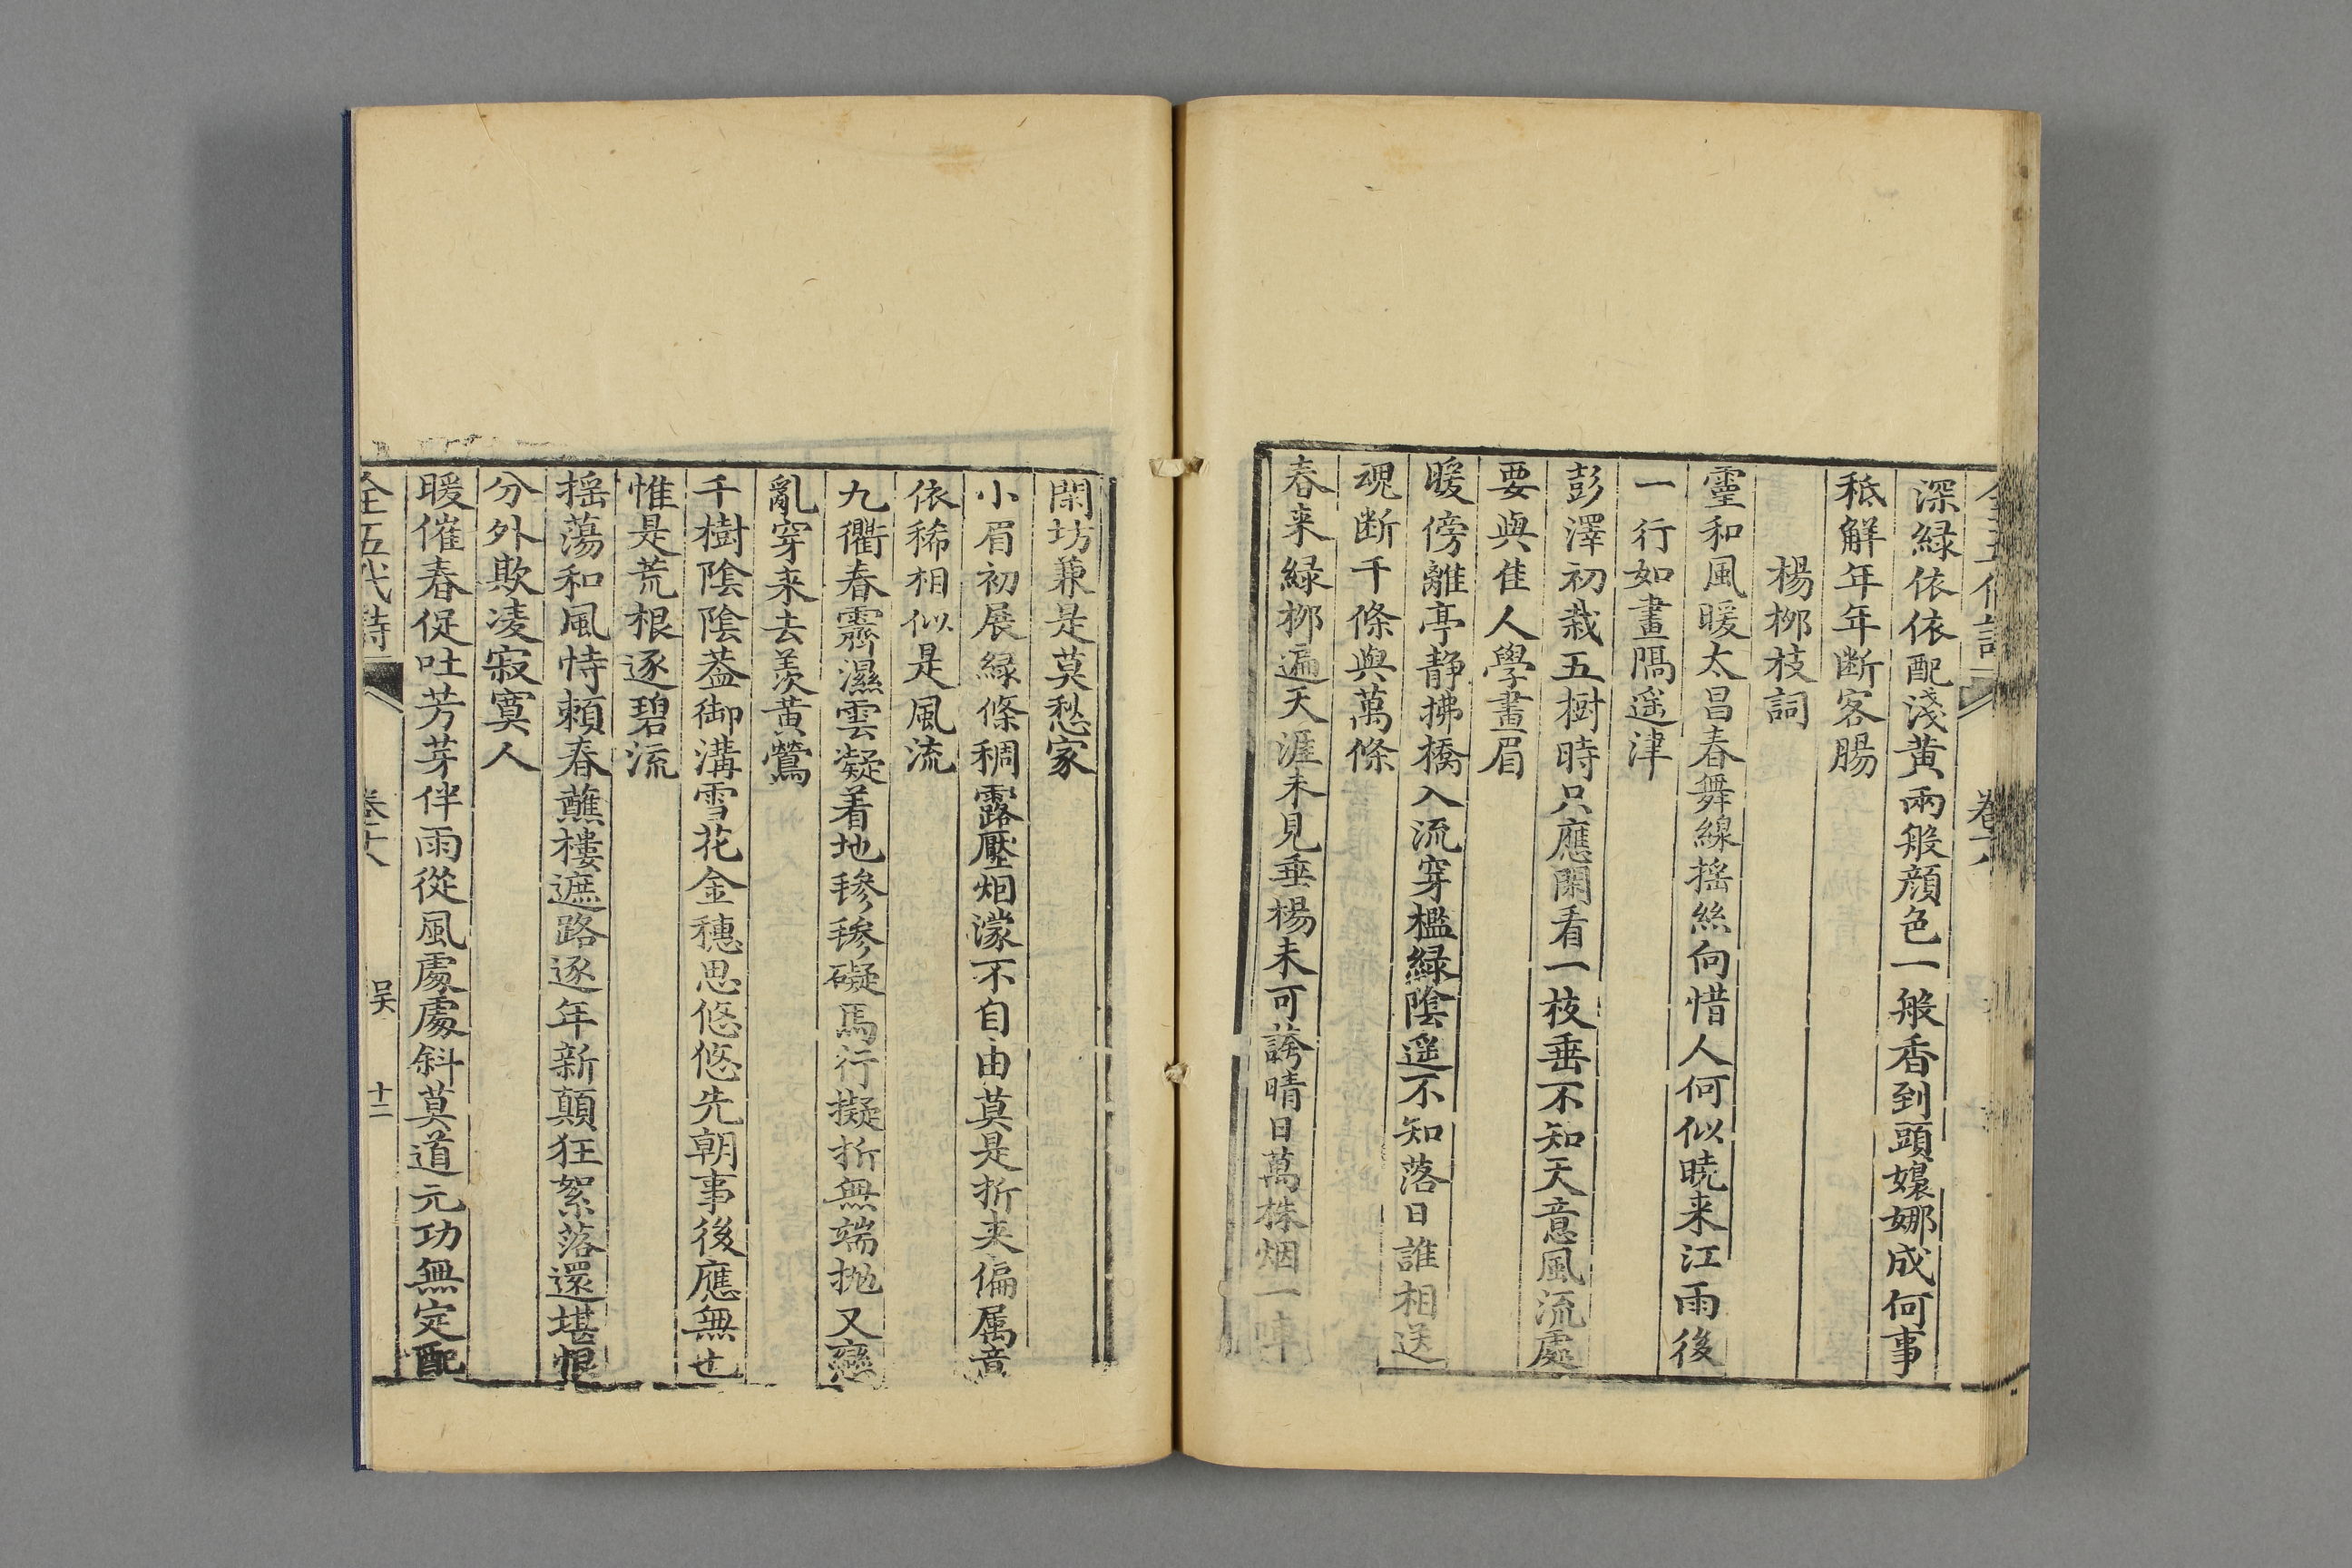 深綠依依配淺黃兩般顏色一般香到頭嬝娜成何事
秪解年年断客腸
楊桞枝詞
靈和風暖太昌春舞線搖絲向惜人何似曉来江雨後
一行如畫隔遥津
彭澤初栽五樹時只應閑看一枝垂不知天意風流處
要與佳人學畫眉
暖傍離亭靜拂橋入流穿檻綠陰遥不知落日誰相送
魂断千條與萬條
春来綠桞遍天涯未見垂楊未可誇晴日萬株烟一陣
閑坊兼是莫愁家
小眉初展綠條稠露壓烟濛不自由莫是折来偏属意
依稀相似是風流
九衢春霽濕雲凝着地毿毿礙馬行擬折無端拋又戀
亂穿来去羨黃鶯
千樹陰陰葢御溝雪花金穗思悠悠先朝事後應無也
惟是荒根逐碧流
搖蕩和風恃賴春蘸樓遮路逐年新顛狂絮落還堪恨
分外欺凌寂寞人
暖催春促吐芳芽伴雨從風處處斜莫道元功無定配
全五代詩
吴
十二